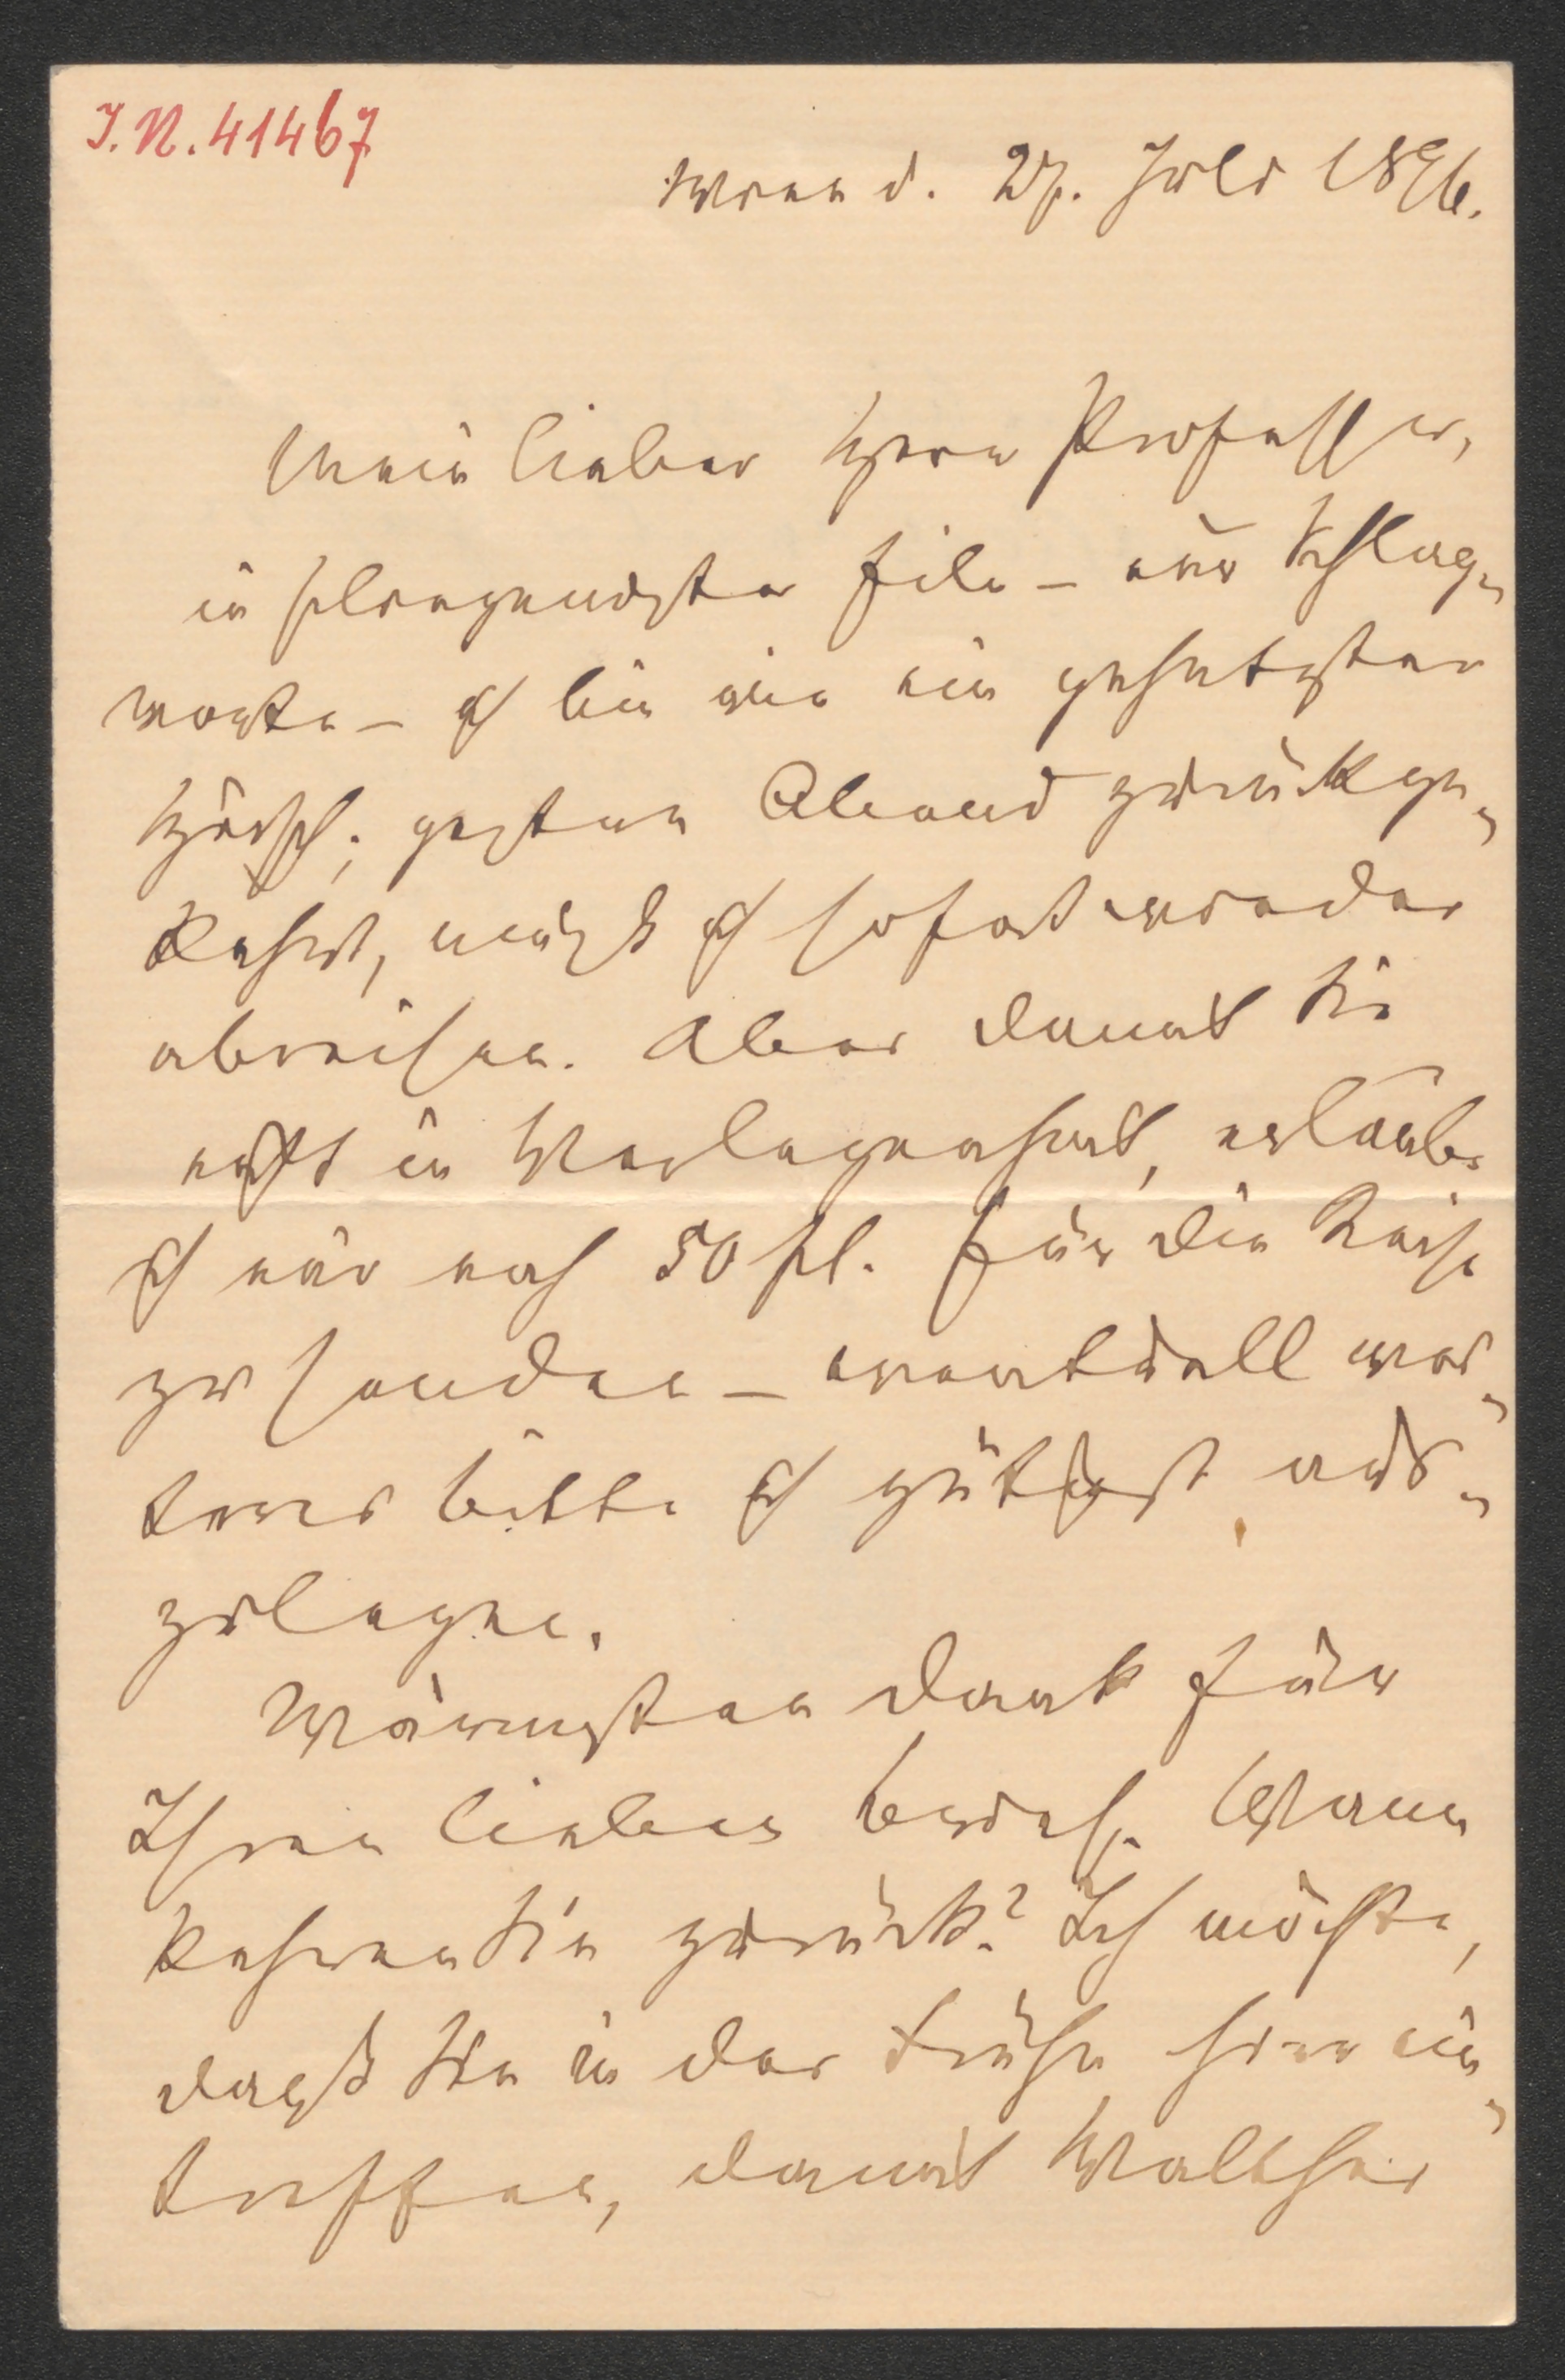 I.N. 41467
Wien d. 27. Juli 1896.
Mein lieber Herr Professor,
in fliegendster Eile – nur Schlag-
worte – ich bin wie ein gehetzter
Hirsch; gestern Abend zurückge-
kehrt, muß ich sofort wieder
abreisen. Aber damit Sie
nicht in Verlegenheit, erlaube
ich mir noch 50 fl. für die Reise
zu senden – eventuell wei-
teres bitte ich gütigst aus-
zulegen.
Wärmsten Dank für
Ihren lieben Besuch. Wann
kehren Sie zurück? Ich möchte,
daß Sie in der Frühe hier ein-
treffen, damit Walther